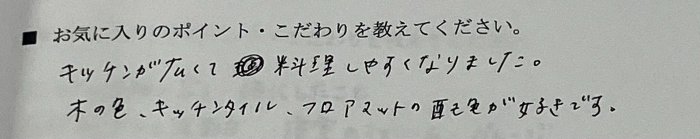 ■ お気に入りのポイント・こだわりを教えてください。
キッチンが広くて料理しやすくなりました。
木の色、キッチンタイル、フロアマットの配色が好きです。